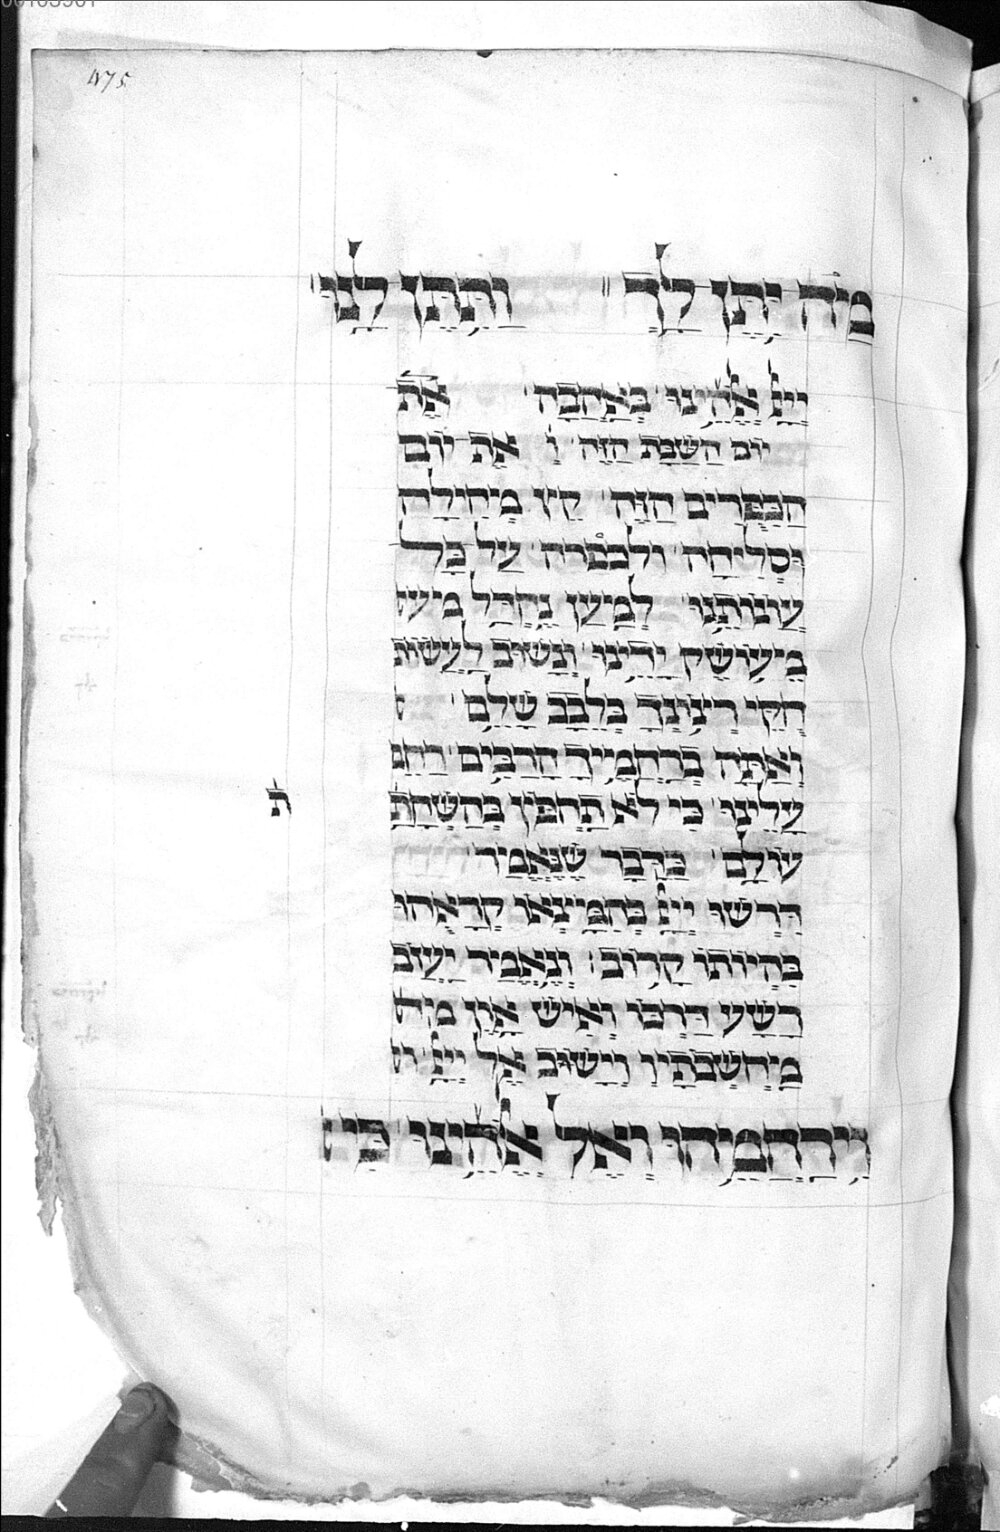 475
מַה יִּתֵּן לָךְ וַתִּתֵּן לָנוּ
יְיָ אֱלֹהֵינוּ בְּאַהֲבָה אֶת
יוֹם הַשַּׁבָּת הַזֶּה וְ אֶת יוֹם
הַכִּפֻּרִים הַזֶּה קֵץ מְחִילָה
וּסְלִיחָה וּלְכַפָּרָה עַל כָּל
עֲוֹנוֹתֵינוּ לְמַעַן נֶחְדַּל
מֵיעוֹשֶׁק יָדֵינוּ וְנָשׁוּב לַעֲשׂוֹת
חֻקֵּי רְצוֹנָךְ בְּלֵבָב שָׁלֵם
וְאַתָּה בְּרַחֲמֶיךָ הָרַבִּים רַחֵם
עָלֵינוּ כִּי לֹא תַחְפֹּץ בְּהַשְׁחָתַת
עוֹלָם כַּדָּבָר שֶׁנֶּאֱמַר
דִּרְשׁוּ יְיָ בְּהִמָּצְאוֹ קְרָאֻהוּ
בִּהְיוֹתוֹ קָרוֹב : וְנֶאֱמַר יַעֲזוֹב
רָשָׁע דַּרְכּוֹ וְאִישׁ אָוֶן
מַחְשְׁבֹתָיו וְיָשׁוּב אֶל יְיָ
וִירַחֲמֵיהוּ וְאֶל אֱלֹהֵינוּ כִּי